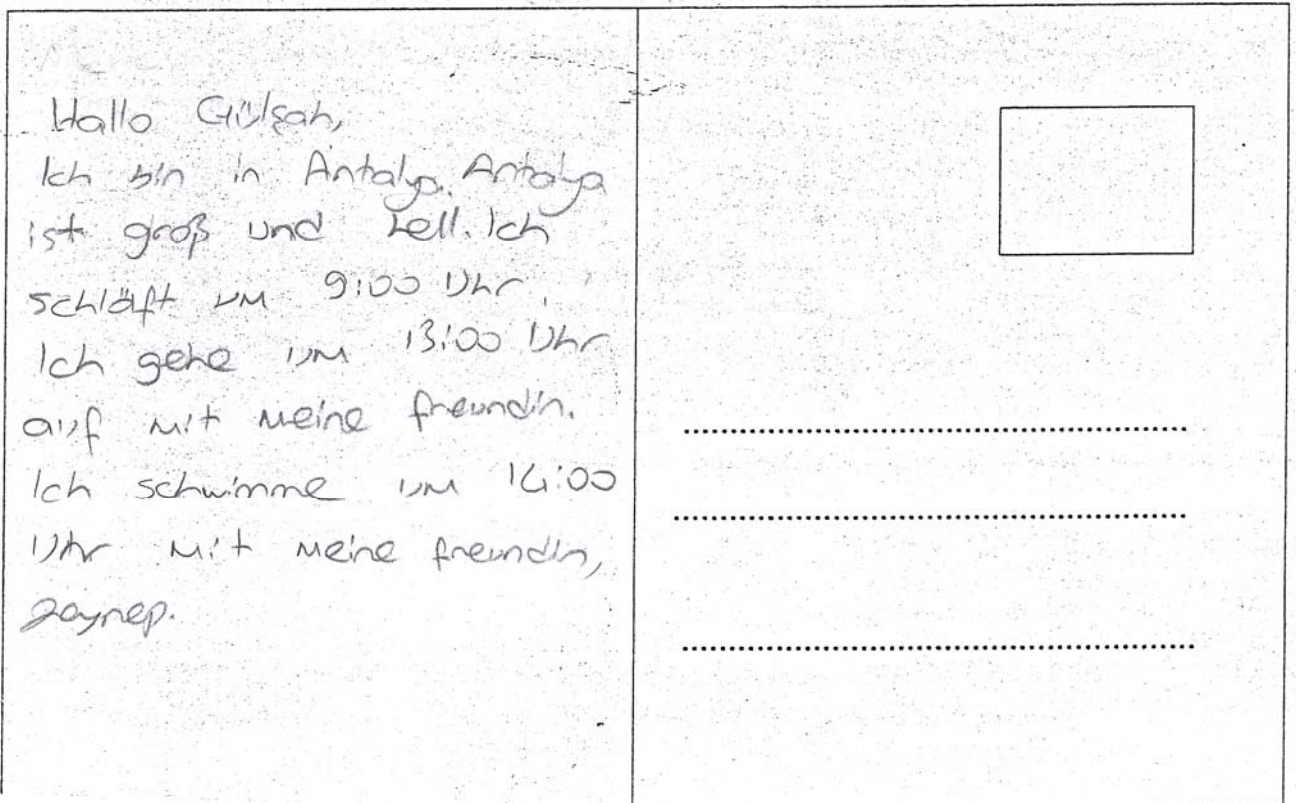 Hallo Gülşah,
Ich bin in Antalya. Antalya
ist groß und hell. Ich
schläft um 9:00 Uhr.
Ich gehe um 13:00 Uhr
auf mit meine freundin.
Ich schwimme um 14:00
Uhr mit meine freundin,
zeynep.